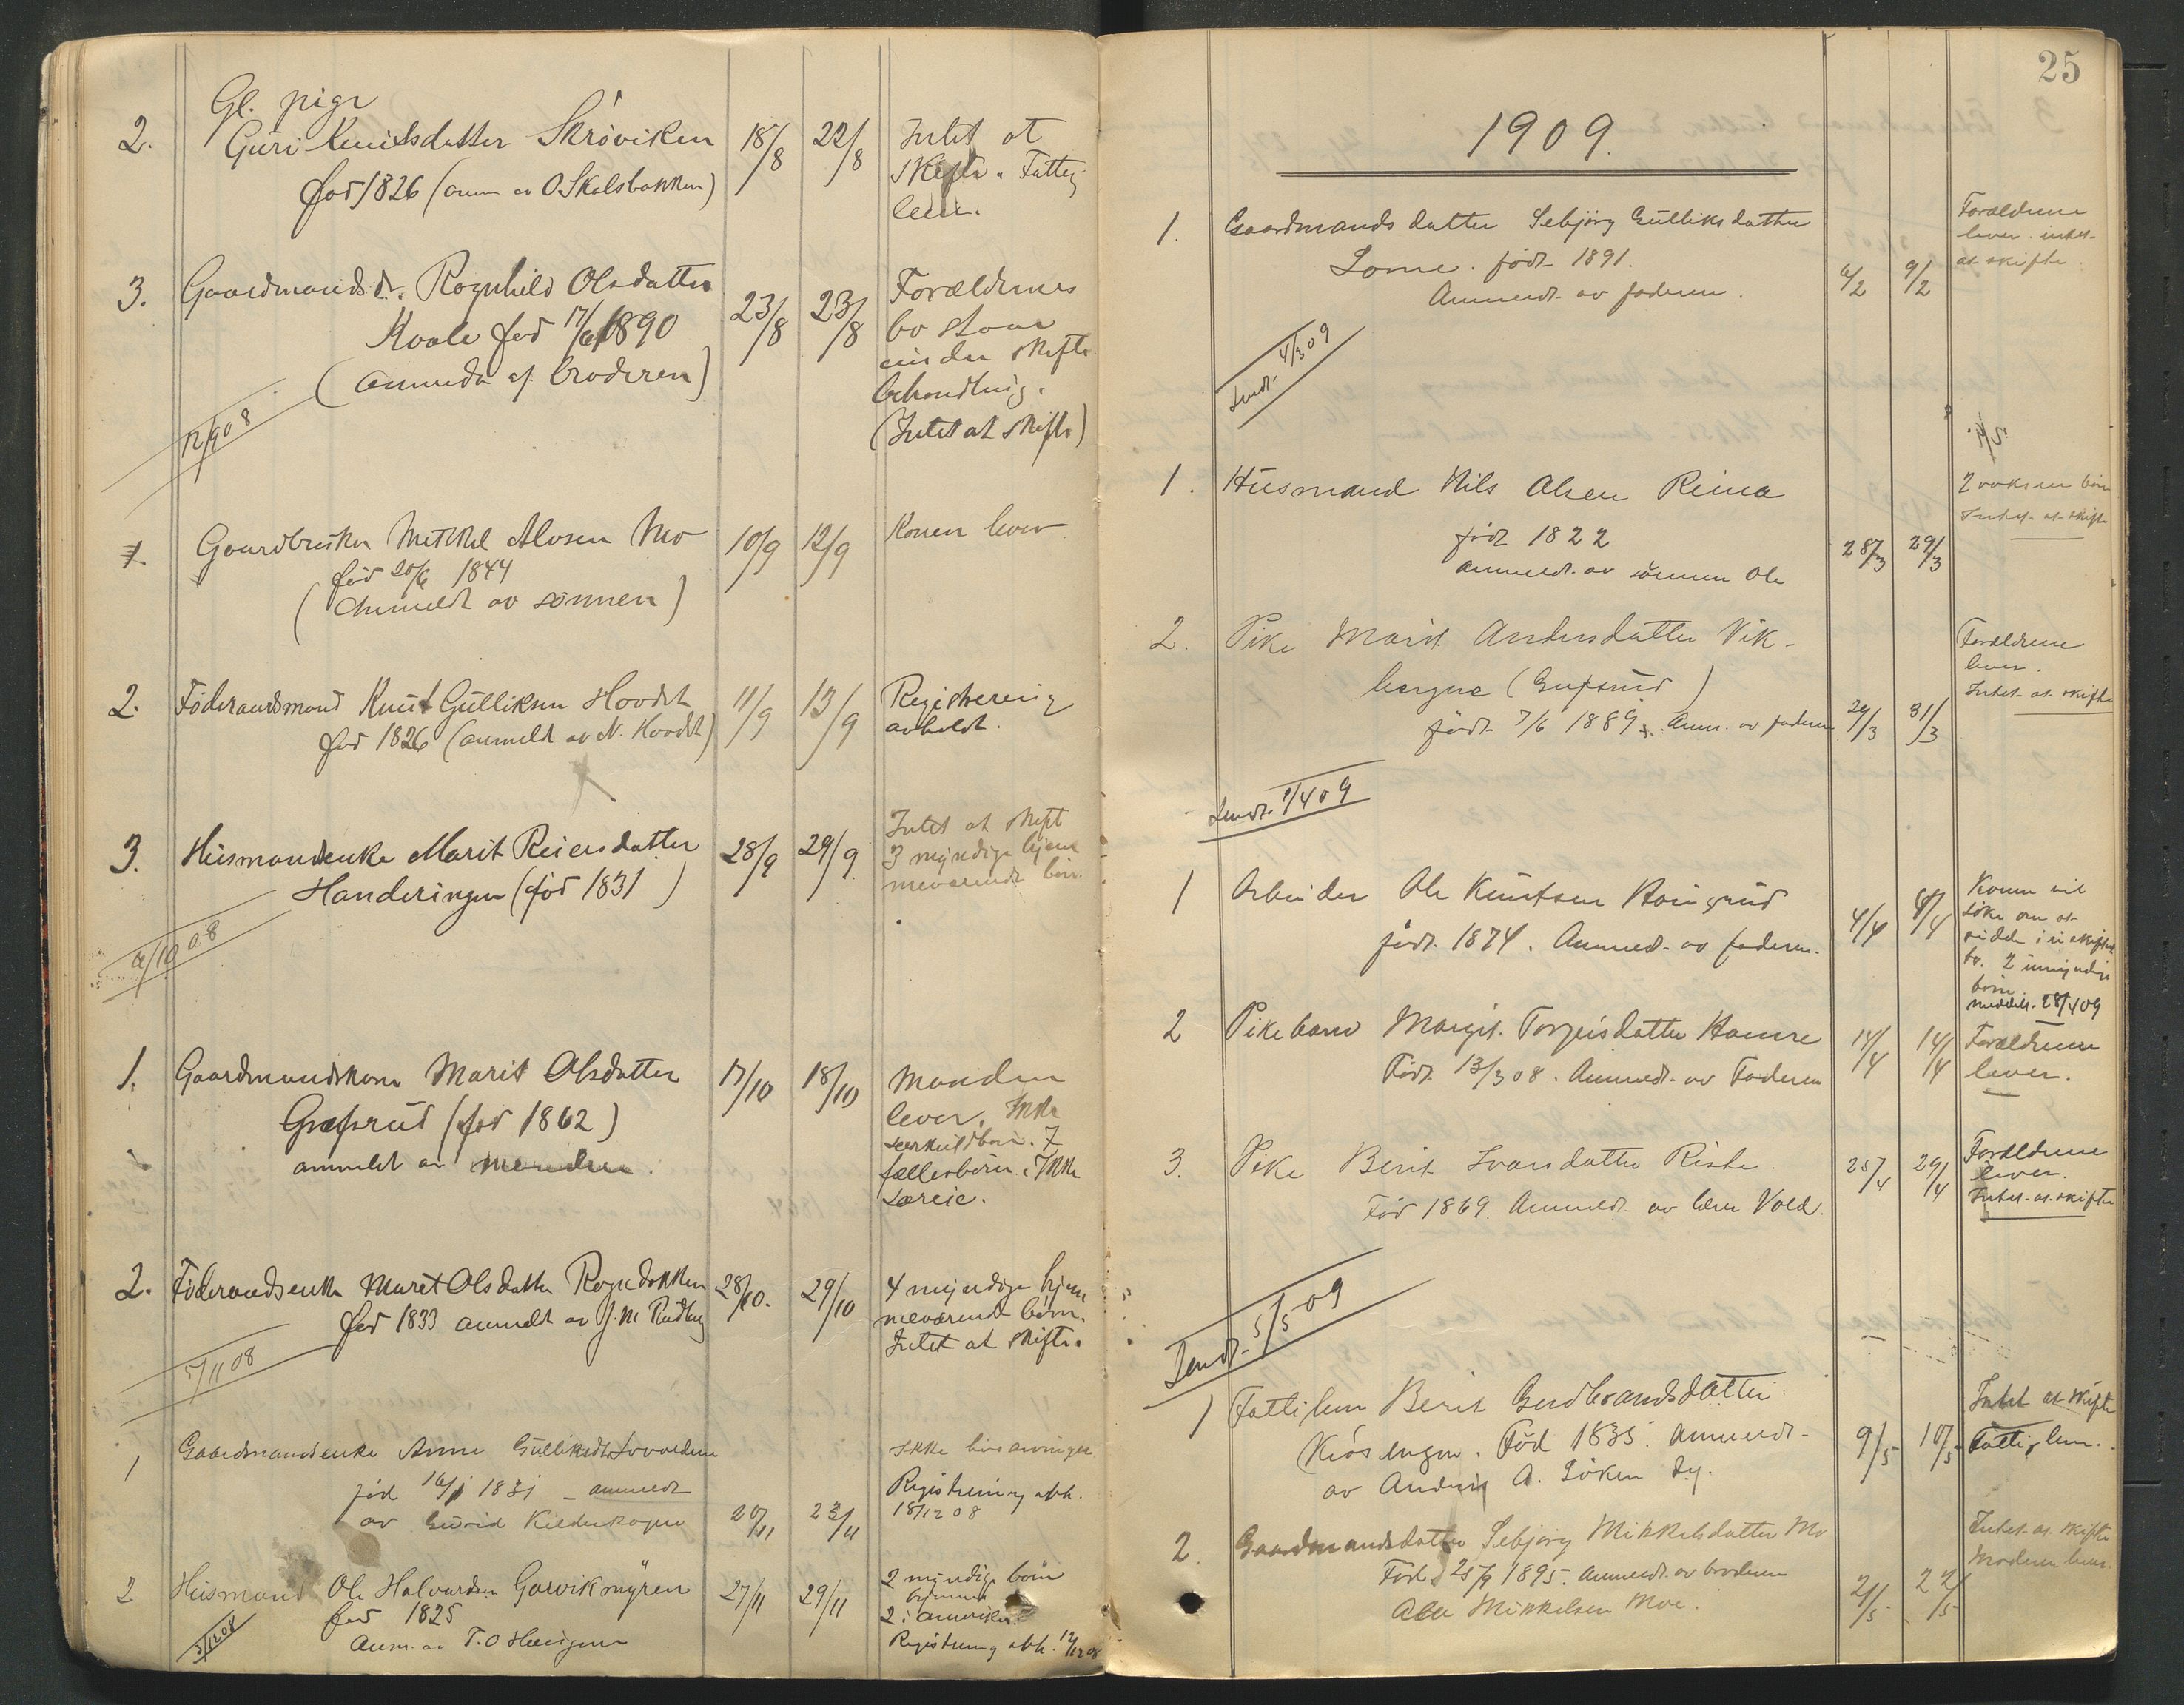 Gl. pige
2. Guri Knutsdatter Skrøviken 18/8 22/8 Intet at
født 1826 (anm av O. Skalsbakken) skifte. Fattig
lem.
3. Gaardmandsd. Ragnhild Olsdatter 23/8 23/8 Forældrenes
fød 17/6 1890 bo staar
(anmeldt af broderen) under skifte
behandling.
(Intet at skifte)
12/9 08
1. Gaardbruker Mikkel Alvsen Mo 10/9 12/9 Konen lever
fød 20/6 1844
(Anmeldt av sønnen)
2. Føderaadsmand Knut Gulliksen 11/9 13/9 Registrering
fød 1826 (anmeldt av N.) avholdt.
3. Husmandsenke Marit Reiersdatter 28/9 29/9 Intet at skift
Handeringen (fød 1831) 3 myndige hjem
meværende børn.
/10 08
1. Gaardmandskone Marit Olsdatter 17/10 18/10 Manden
Græfsrud (fød 1862) lever. Ikke
anmeldt av manden. særkuldbørn. 7
fællesbørn. Ikke
særeie.
2. Føderaadsenke Marit Olsdatter Rogndokken 28/10. 29/10 4 myndige hjem
fød 1833 anmeldt av J. M. meværende børn.
Intet at skifte.
5/11 08
1 Gaardmandsenke Anne Gulliksdtr. Ikke livsarvinger
fød 16/1 1831 – anmeldt Registrering afh.
av Gurid 20/11 23/11 18/12 08
2 Husmand Ole Halvardsen Garvikmyren 27/11 29/11 2 myndige børn
fød 1825 hjemme
Anm. av T. O 2 i Amerika.
3/12 08 Registrering afh. 12/12 08
25
1909.
1. Gaardmandsdatter Sebjörg Gulliksdatter Forældrene
Lome. født 1891. lever. intet
Anmeldt av faderen. 6/2 9/2 at skifte
Sendt 4/3 09
1. Husmand Nils Olsen Reina 2 voksne børn
født 1822 Intet at skifte
anmeldt av sönnen Ole 28/3 29/3
2. Pike Marit Andersdatter Vik- Forældrene
bergne lever.
født 7/6 1889. Anm. av faderen 29/3 31/3 Intet at skifte
Sendt 1/4 09
1 Arbeider Ole Knutsen Konen vil
født 1874. Anmeldt av faderen. 4/4 8/4 söke om at
sidde i uskiftet
bo. 2 umyndige
børn
meddelt 28/4 09
2 Pikebarn Margit Torgeirsdatter Hamre 14/4 14/4 Forældrene
Født 13/3 08. Anmeldt av Faderen lever.
3. Pike Berit Ivarsdatter Riste. 25/4 29/4 Forældrene
Fød 1869. Anmeldt av Vold. lever.
Intet at skifte
Sendt 5/5 09
1 Fattiglem Berit Gudbrandsdatter Intet at skifte
Fød 1835. Anmeldt 9/5 10/5 Fattiglem.
av A. Löken
2. Gaardmandsdatter Sebjörg Mikkelsdatter Mo Intet at skifte
Fød 25/9 1895. Anmeldt av broderen Moderen lever.
Mikkelsen Moe. 2/5 22/5